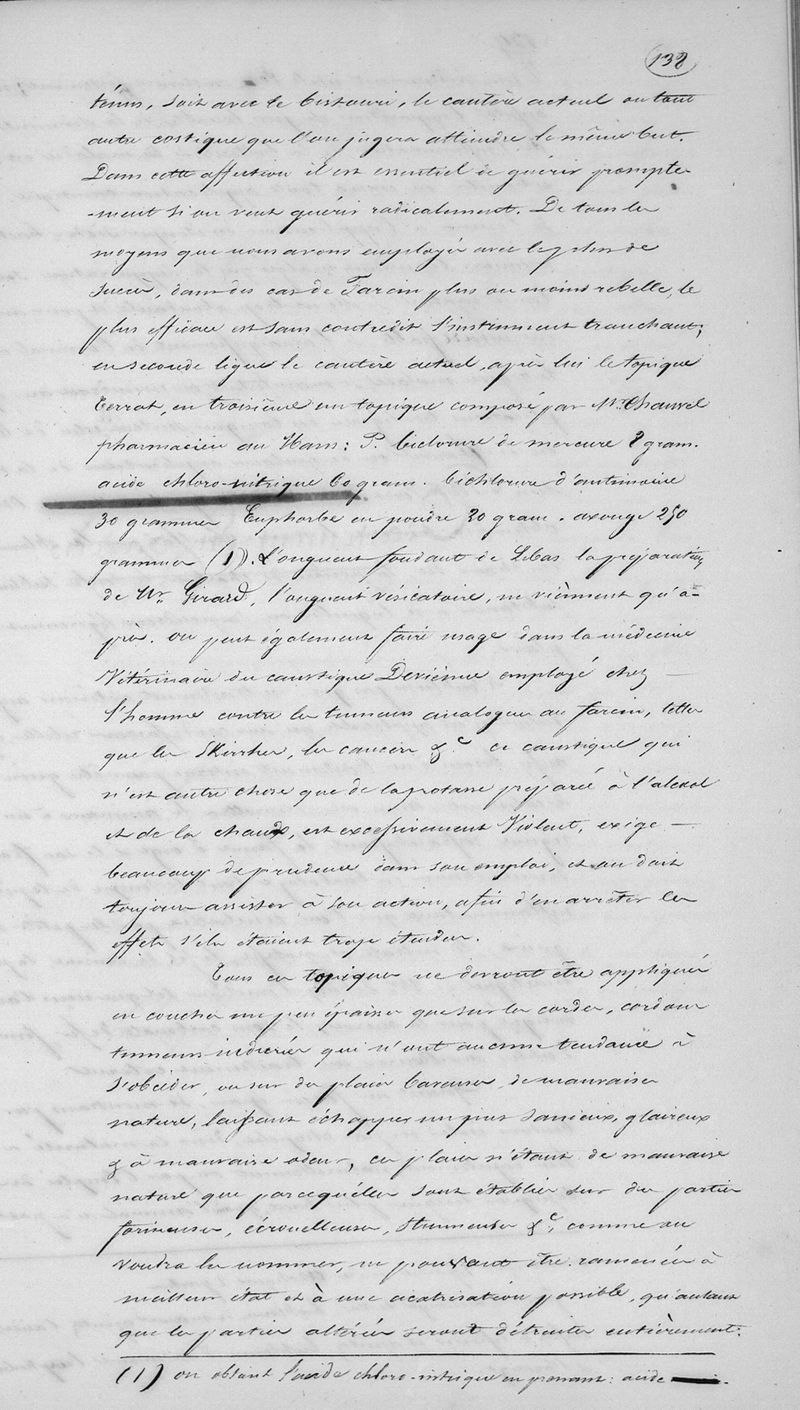 138
ténus, soit avec le bistouri, le cautère actuel ou tout
autre costique que l'on jugera atteindre le même but.
Dans cette affection il est essentiel de guérir prompte-
-ment si on veut guérir radicalement. De tous les
moyens que nous avons employés avec le plus de
succès, dans des cas de Farcin plus ou moins rebelle, le
plus efficace est sans contredit l'instrument tranchant;
en seconde ligne le cautère actuel, après lui le topique
Terrat, en troisième un topique composé par Mr. Chauvel
pharmacien au Mans: P. biclorure de mercure 8 gram.
acide chloro-nitrique 60 gram. bichlorure d'antimoine
30 grammes Euphorbe en poudre 30 gram. axonge 250
grammes (1). L'onguent fondant de Lebas la préparation
de Mr. Girard, l'onguent vésicatoire, ne viènnent qu'a-
près. on peut également faire usage dans la médecine
Vétérinaire du caustique Devienne employé chez —
l'homme contre les tumeurs analogues au farcin, telles
que les skirrhes, les cancers &c. ce caustique qui
n'est autre chose que de la potasse préparée à l'alcool
et de la chaux, est excessivement Violent, exige —
beaucoup de prudence dans son emploi, et on doit
toujours assister à son action, afin d'en arrêter les
effets s'ils étaient trop étendus.
Tous ces topiques ne devront être appliqués
en couches un peu épaisses que sur les cordes, cordons
tumeurs indurées qui n'ont aucune tendance à
s'abcéder, ou sur des plaies baveuses, de mauvaise
nature, laissant échapper un pus sanieux, glaireux
& à mauvaise odeur, ces plaies n'étant de mauvaise
nature que parcequ'elles sont établies sur des parties
farineuses, écrouelleuses, strumeuses &c, comme on
voudra les nommer, ne pouvant être ramenées à
meilleur état et à une cicatrisation possible, qu'autant
que les parties altérées seront détruites entièrement.
(1) on obtient l'acide chloro-nitrique en prenant: acide